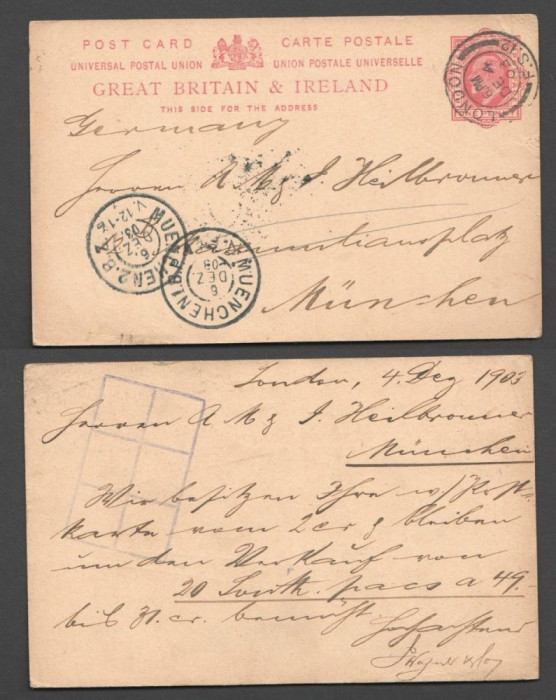 POST CARD CARTE POSTALE
UNIVERSAL POSTAL UNION UNION POSTALE UNIVERSELLE
GREAT BRITAIN & IRELAND
THIS SIDE FOR THE ADDRESS
LONDON
Germany
Herren A M & J. Heilbronner
Maximiliansplatz
München
MUENCHEN 2. B.Z.
V. 12-1
6 DEZ 03
MUENCHEN
6 DEZ 03
London, 4. Dez 1903
Herren A M & J. Heilbronner
München
Wir besitzen Ihre w/ Post-
karte vom 2 cr & bleiben
um den Verkauf von
20 South. pacs a 49.
bis 31. cr. bemüht